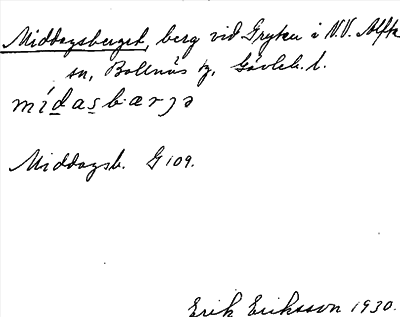 Middagsberget, berg vid Gryken i N.V. Alfta
sn, Bollnäs tg, Gävleb. l.
mìd̲as̲bærjə
Middagsb. G 109.
Erik Eriksson 1930.